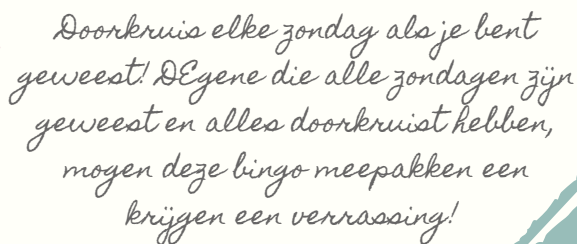 Doorkruis elke zondag als je bent
geweest! DEgene die alle zondagen zijn
geweest en alles doorkruist hebben,
mogen deze bingo meepakken een
krijgen een verrassing!